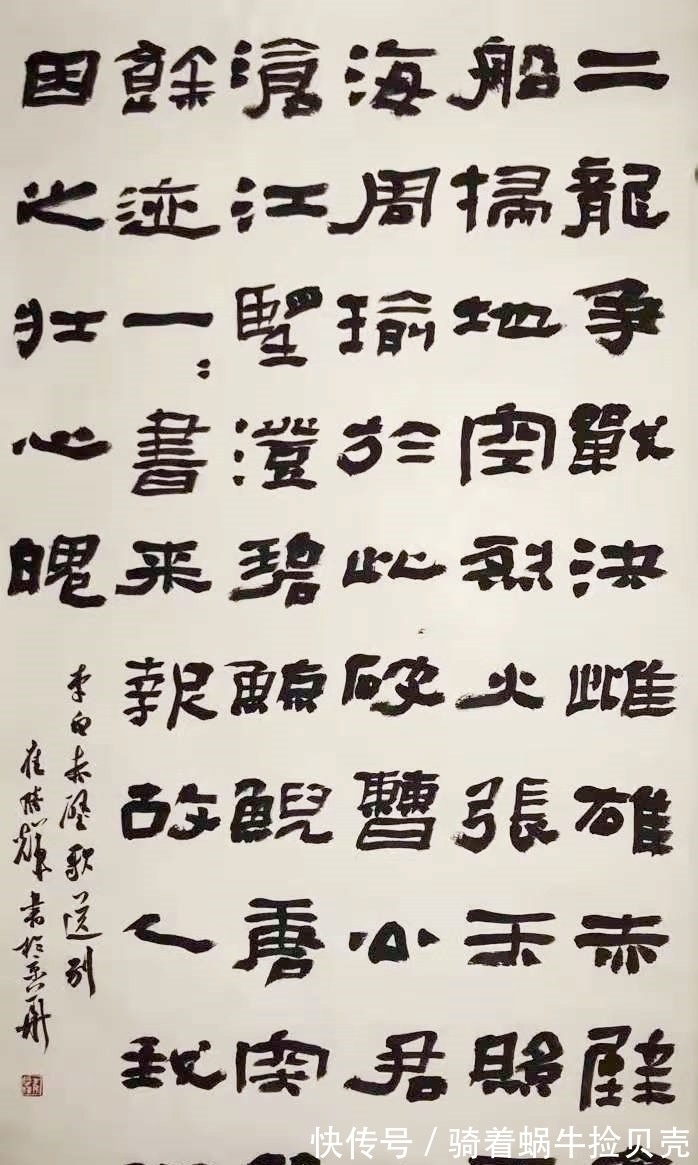 二龍爭戰決雌雄赤壁
船掃地空烈火張天照
海周瑜於此破曹公君
滄江望澄碧鯨鯢唐突
餘迹一：書来報故人我
因之壯心魄
李白赤壁歌送別
崔輝書於京華
快传号/骑着蜗牛捡贝壳